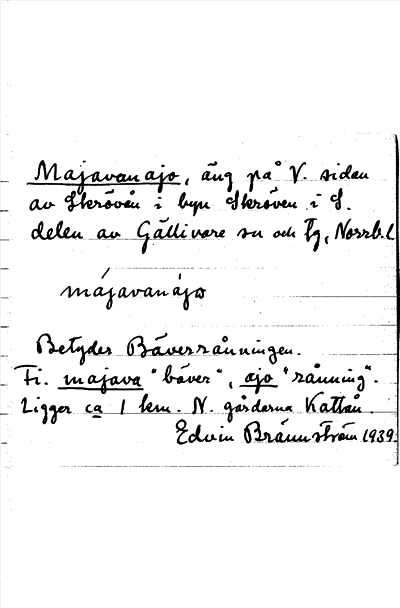 Majavanajo, äng på V. sidan
av Skrövån i byn Skröven i S.
delen av Gällivare sn och Tg, Norrb.l
májavanájo
Betyder Bäverrånningen.
Fi. majava "bäver", ajo "rånning".
Ligger ca 1 km. N. gårdarna Kattån.
Edvin Brännström 1939.